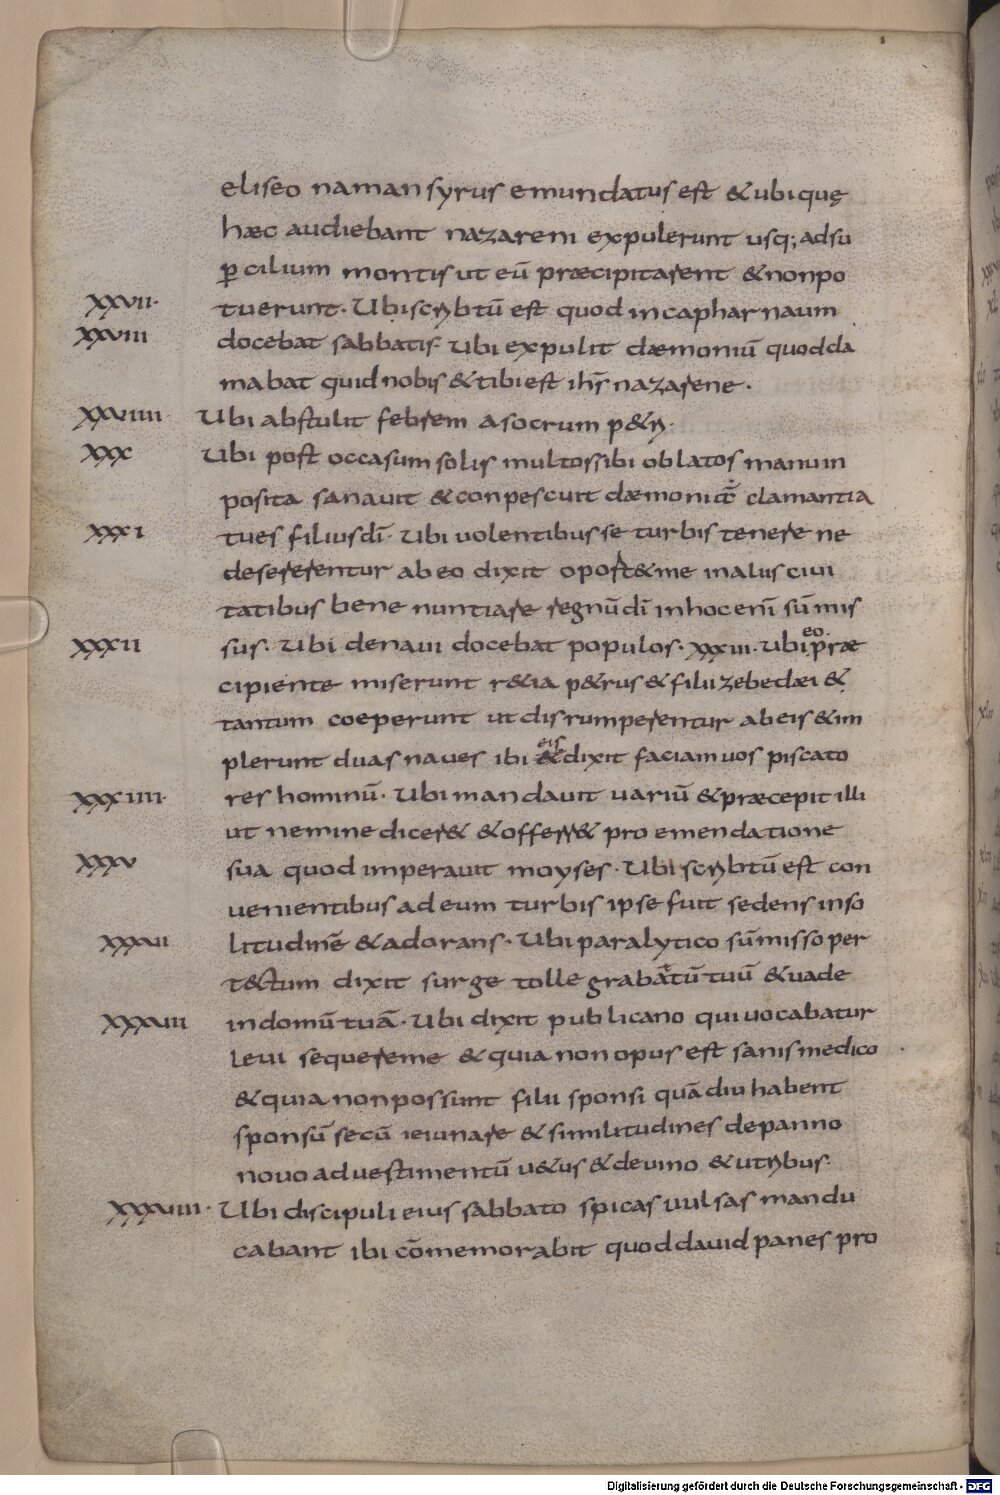 eliseo naman syrus emundatus est & ubi quę
haec audiebant nazareni expulerunt usq; adsu
ꝑcilium montis ut eū praecipitarent & non po
XXVII· tuerunt· Ubi scribtū est quod in capharnaum
XXVIII docebat sabbatis· Ubi expulit daemoniū quod cla
mabat quid nobis & tibi est ihs̄ nazarene·
XXVIIII· Ubi abstulit febrem a socrum p&ri·
XXX Ubi post occasum solis multos sibi oblatos manu in
posita sanavit & conpescuit daemoni clamantia
XXXI tu es filius dī· Ubi volentibus se turbis tenere ne
desererentur ab eo dixit oport& me in aliis civi
tatibus bene nuntiare regnū dī in hoc enī sū mis
XXXII sus· Ubi de navi docebat populos· XXXIII· Ubi eo prae
cipiente miserunt r&ia p&rus & filii zebedaei &
tantum coeperunt ut disrumperentur ab eis & im
plerunt duas naves ibi & eis dixit faciam vos piscato
XXXIIII· res hominū· Ubi mandavit variū & praecepit illi
ut nemine dicer& & offerr& pro emendatione
XXXV sua quod imperavit moyses· Ubi scribtū est con
venientibus ad eum turbis ipse fuit sedens in so
XXXVI litudinē & adorans· Ubi paralytico sūmisso per
t&ctum dixit surge tolle grabatū tuū & vade
XXXVII in domū tuā· Ubi dixit publicano qui vocabatur
levi sequere me & quia non opus est sanis medico
& quia non possunt filii sponsi quādiu habent
sponsū secū ieiunare & similitudines de panno
novo ad vestimentū v&us & de vino & utribus·
XXXVIII· Ubi discipuli eius sabbato spicas vulsas mandu
cabant ibi cōmemorabit quod david panes pro
Digitalisierung gefördert durch die Deutsche Forschungsgemeinschaft - DFG